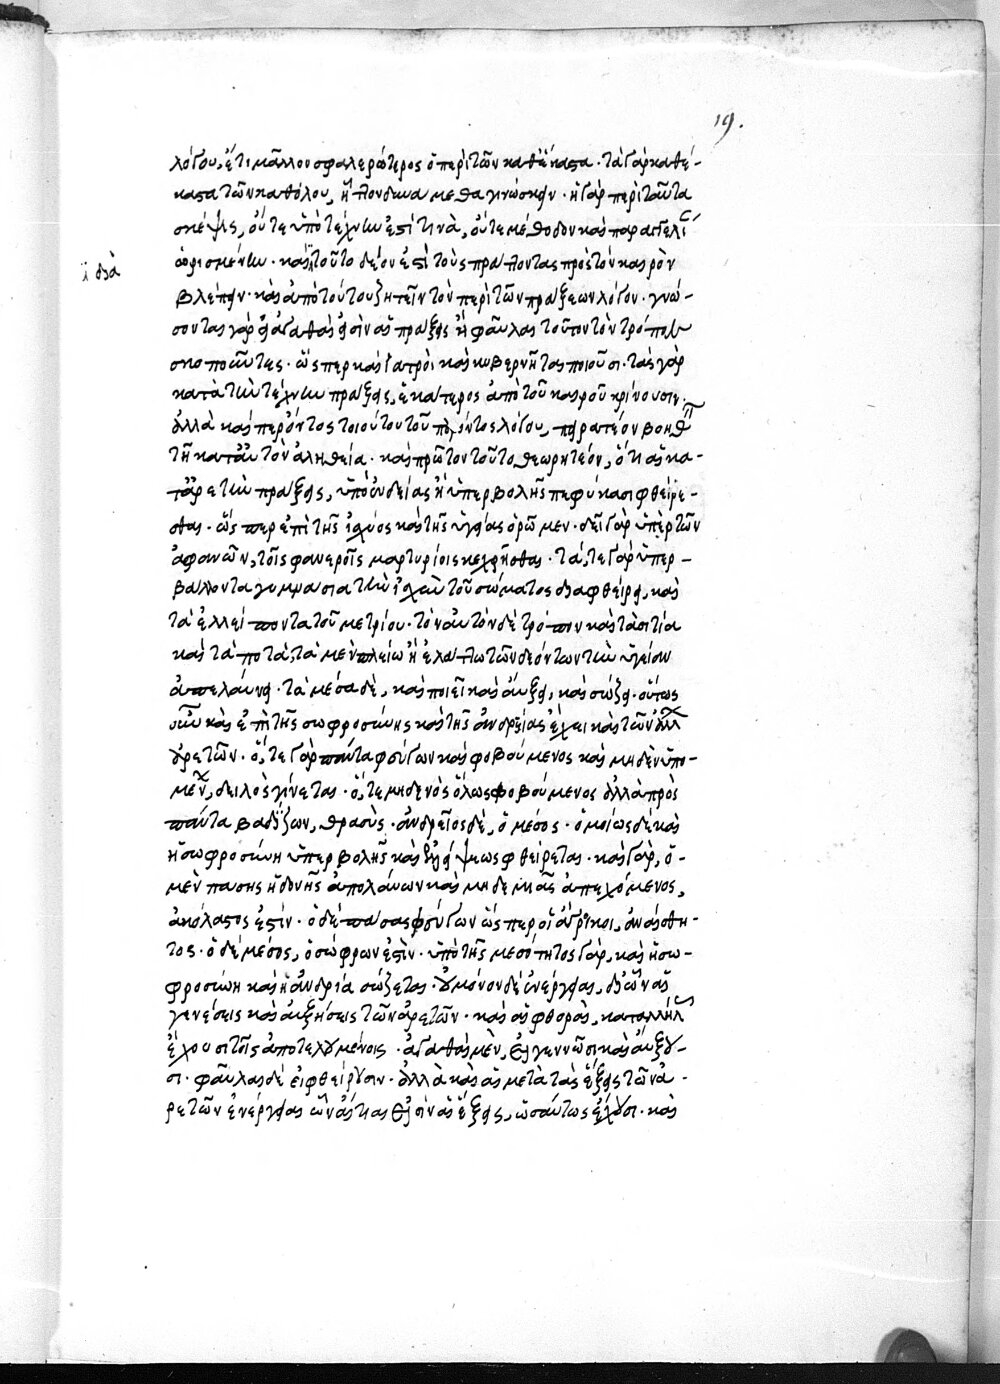 19.
λόγου, ἔτι μᾶλλον σφαλερώτερος ὁ περὶ τῶν καθέκαστα. τὰ γὰρ καθέ-
καστα τῶν καθόλου, ἧττον δυνάμεθα γινώσκειν. ἡ γὰρ περὶ ταῦτα
σκέψις, οὔτε ὑπὸ τέχνην ἐστί τινὰ, οὔτε μέθοδον καὶ παραγγελί
ὡρισμένην. καὶ τοῦτο δέον ἐστὶ τοὺς πράττοντας πρὸς τὸν καιρὸν
ἰδία
βλέπειν. καὶ ἀπὸ τούτου ζητεῖν τὸν περὶ τῶν πράξεων λόγον. γνώ-
σονται γὰρ εἰ ἀγαθαὶ εἰσὶν αἱ πράξεις ἢ φαῦλαι τοῦτον τὸν τρόπον
σκοποῦντες. ὥσπερ καὶ ἰατροὶ καὶ κυβερνῆται ποιοῦσι. τὰς γὰρ
κατὰ τὴν τέχνην πράξεις, ἑκάτερος ἀπὸ τοῦ καιροῦ κρίνουσιν.
ἀλλὰ καίπερ ὄντος τοιούτου τοῦ παρόντος λόγου, πειρατέον βοηθ
τῇ κατ' αὐτὸν ἀληθεία. καὶ πρῶτον τοῦτο θεωρητέον, ὅτι αἱ κα-
τ' ἀρετὴν πράξεις, ὑπὸ ἐνδείας ἢ ὑπερβολῆς πεφύκασι φθείρε-
σθαι. ὥσπερ ἐπὶ τῆς ἰσχύος καὶ τῆς ὑγείας ὁρῶμεν. δεῖ γὰρ ὑπὲρ τῶν
ἀφανῶν, τοῖς φανεροῖς μαρτυρίοις κεχρῆσθαι. τά, τε γὰρ ὑπερ-
βάλλοντα γυμνάσια τὴν ἰσχὺν τοῦ σώματος διαφθείρει, καὶ
τὰ ἐλλείποντα τοῦ μετρίου. τὸν αὐτὸν δὲ τρόπον καὶ τὰ σιτία
καὶ τὰ ποτὰ, τὰ μὲν πλείω ἢ ἐλάττω τῶν δεόντων τὴν ὑγείαν
ἀπελαύνει. τὰ μέσα δὲ, καὶ ποιεῖ καὶ αὔξει, καὶ σώζει. οὕτως
οὖν καὶ ἐπὶ τῆς σωφροσύνης καὶ τῆς ἀνδρείας ἔχει καὶ τῶν ἄλλ
ἀρετῶν. ὅ, τε γὰρ πάντα φεύγων καὶ φοβούμενος καὶ μηδὲν ὑπο-
μέν, δειλὸς γίνεται. ὅ, τε μηδενὸς ὅλως φοβούμενος ἀλλὰ πρὸς
πάντα βαδίζων, θρασὺς. ἀνδρεῖος δὲ, ὁ μέσος. ὁμοίως δὲ καὶ
ἡ σωφροσύνη ὑπερβολῆς καὶ ἐλλείψεως φθείρεται. καὶ γὰρ, ὁ-
μὲν πάσης ἡδονῆς ἀπολαύων καὶ μηδεμιᾶς ἀπεχόμενος,
ἀκόλαστός ἐστίν. ὁ δὲ πάσας φεύγων ὥσπερ οἱ ἄγροικοι, ἀναίσθη-
τος. ὁ δὲ μέσος, ὁ σώφρων ἐστὶν. ὑπὸ τῆς μεσότητος γὰρ, καὶ ἡ σω-
φροσύνη καὶ ἡ ἀνδρία σώζεται. οὐ μόνον δὲ ἐνέργειαι, δι' ὧν αἱ
γενέσεις καὶ αὐξήσεις τῶν ἀρετῶν. καὶ αἱ φθοραὶ, καταλλήλ
ἔχουσι τοῖς ἀποτελουμένοις. ἀγαθαὶ μὲν, εἰ γεννῶσι καὶ αὔξου-
σι. φαῦλαι δὲ εἰ φθείρουσιν. ἀλλὰ καὶ αἱ μετὰ τὰς ἕξεις τῶν ἀ-
ρετῶν ἐνέργειαι ὧν αἴτιαι εἰσὶν αἱ ἕξεις, ὡσαύτως ἔχουσι. καὶ